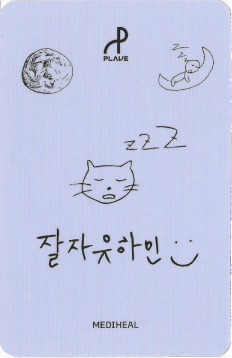 PLAVE
zz
zzz
잘자유하민 :)
MEDIHEAL